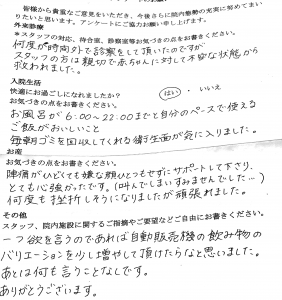 皆様から貴重なご意見をいただき、今後さらに院内態勢の充実に努めてまい
りたいと思います。アンケートにご協力お願い申し上げます。
外来診療
*スタッフの対応、待合室、診察室等お気づきの点をお書きください。
何度が時間外で診察をして頂いたのですが
スタッフの方は親切で赤ちゃんに対して不安な状態から
救われました。
入院生活
快適にお過ごしになれましたか? はい ・ いいえ
お気づきの点をお書きください。
お風呂が6:00〜22:00までと自分のペースで使える
ご飯がおいしいこと
毎朝ゴミを回収してくれる衛生面が気に入りました。
お産
お気づきの点をお書きください。
陣痛がひどくても嫌な顔ひとつせずにサポートして下さり、
とても心強かったです。(叫んでしまいすみませんでした…)
何度も挫折しそうになりましたが頑張れました。
その他
スタッフ、院内施設に関するご指摘やご要望などご自由にお書きください。
一つ欲を言うのであれば自動販売機の飲み物の
バリエーションを少し増やして頂けたらなと思いました。
あとは何も言うことなしです。
ありがとうございます。